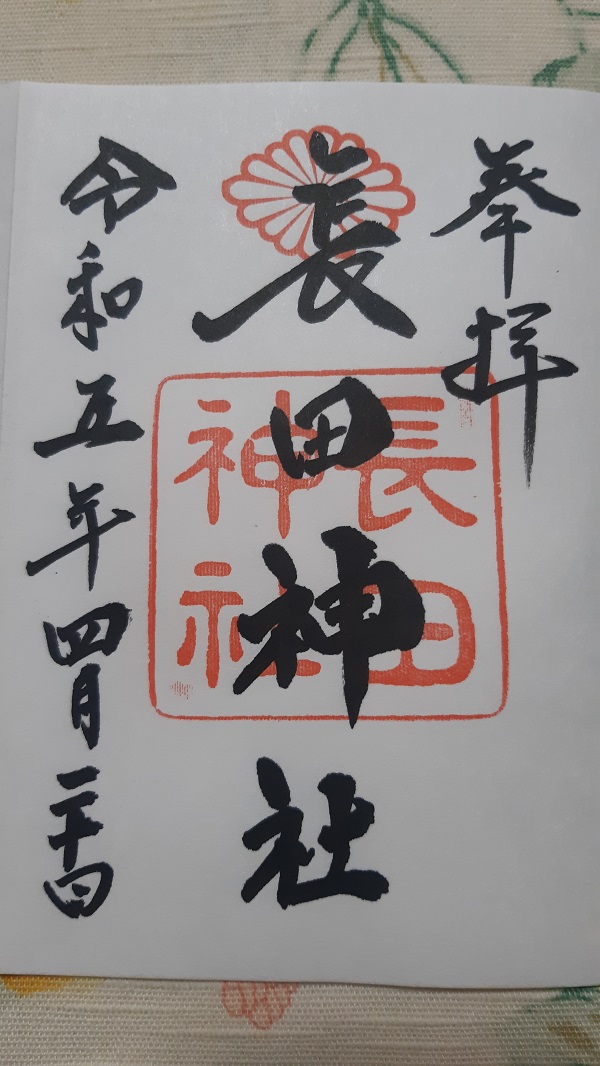 奉拝
長田神社
長田
神社
令和五年四月二十四